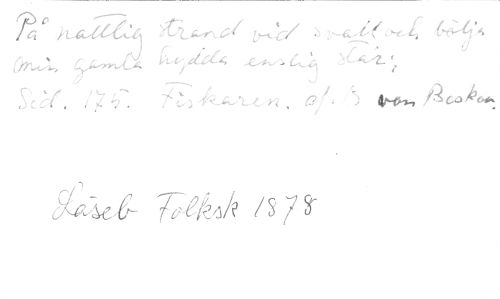 På nattlig strand vid svall och bölja
min gamla hydda enslig står;
Sid. 175. Fiskaren. af B von Beskow.
Läseb Folksk 1878